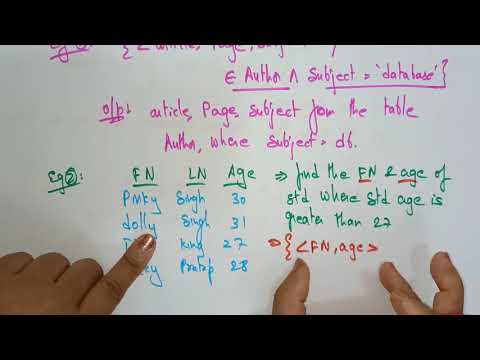 ∈ Author ∧ Subject = 'database'}
o/p: article, Page, subject from the table
Author, where subject = db.
Eg②:
FN LN Age
Pinky Singh 30
dolly Singh 31
King 27
Pratap 28
⇒ find the FN & age of
std where std age is
greater than 27
⇒ { < FN, age >